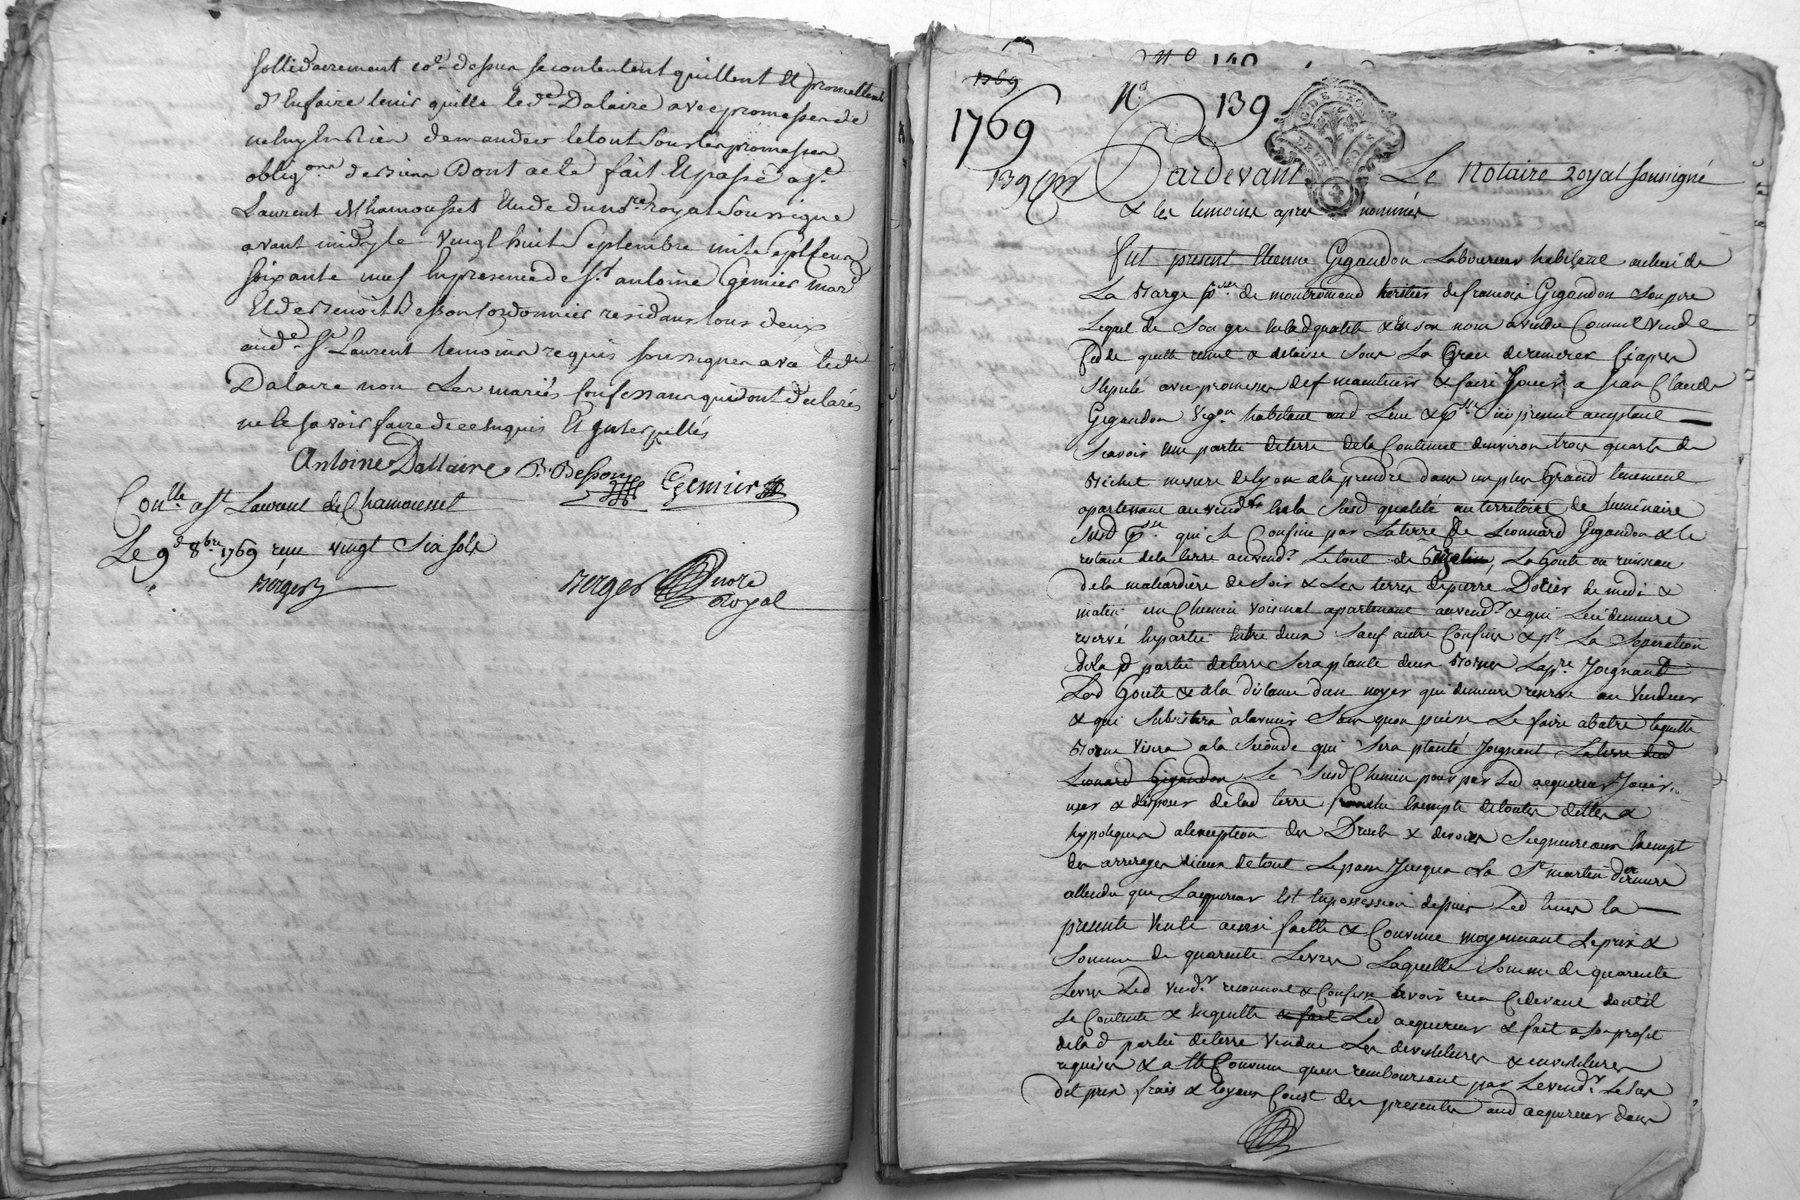 sollidairement co.e dessus se contentent quittent et promettent
d'en faire tenir quitte led.t Dalaire avec promesse de
ne luy en rien demander le tout sous les promesses
oblig.ons de biens Dont acte fait et passé a S.t
Laurent de Chamousset Etude du no.re royal soussigné
avant midy le vingt huit Septembre mile sept cent
soixante neuf en presence de S.r antoine Gemier mar.d
et de Benoit Besson Cordonnier residans tous deux
aud.t S.t Laurent temoins requis soussignes avec led.t
Dalaire non les mariés Confessans qui ont declarés
ne le savoir faire de ce enquis et interpellés
Antoine Dallaire B. Besson Gemier
Con.lle a S.t Laurent de Chamousset
Le 9.e 8.bre 1769 reçu vingt six sols
Berger
Berger no.re
Royal
1769
N.o 139
1769
139
Pardevant Le Notaire royal soussigné
& les temoins apres nommés
fut present Etienne Gigandon Laboureur habitant au lieu de
La Barge p.sse de montromand heritier de francois Gigandon son pere
Lequel de son gre en lad qualité & en son nom a vendu Comme vend
Cede quitte remet & delaisse sous La Grace de remerer Ciapres
stipulé avec promesses de maintenir & faire Jouir a Jean Claude
Gigandon Vig.on habitant aud Lieu & p.sse Sici present acceptant
Scavoir une partie de terre de la Contenue d'environ trois quarts de
Bichet mesure de lyon a la prendre dans un plus Grand tenement
apartenant au vend.r en la Susd qualité au territoire de
susd p.sse qui se Confine par La terre de Leonnard Gigandon & le
restant de la terre au vend.r Le tout de La Goute ou ruisseau
de la maliardiere de soir & Les terres de pierre de midi &
matin un Chemin voisinal apartenant au vend.r & qui Lui demeure
reservé en partie entre deux Sauf autre Confins & p.r La Separation
de la d partie de terre Sera planté deux Bornes La p.re Joignant
Lad Goute & a la distance d'un noyer qui demeure reservé au vendeur
& qui Subsistera à lavenir Sans quon puisse Le faire abatre laquelle
Borne visera a la Seconde qui Sera planté Joignant La terre dud
Leonard Gigandon Le Susd Chemin pour par Led acquereur Jouir
user & disposer de lad terre franche Exempte de toutes dettes &
hypoteques a lexception des Droits & devoirs Seigneuriaux Exempt
des arrerages diceux de tout Le passé Jusqua La S.t martin derniere
attendu que Lacquereur Est En possession depuis Led tems la
presente vente ainsi faitte & Convenue moyennant Le prix &
Somme de quarente Livres Laquelle Somme de quarente
Livres Led vend.r reconnoit & Confesse avoir reçu Cidevant dont il
se Contente & En quitte & fait Led acquereur & fait a son profit
de la d partie de terre vendue Les devestitures & investitures
requises & a Ete Convenu quen remboursant par Le vend.r Le sus
dit prix frais & loyaux Coust des presentes aud acquereur dans